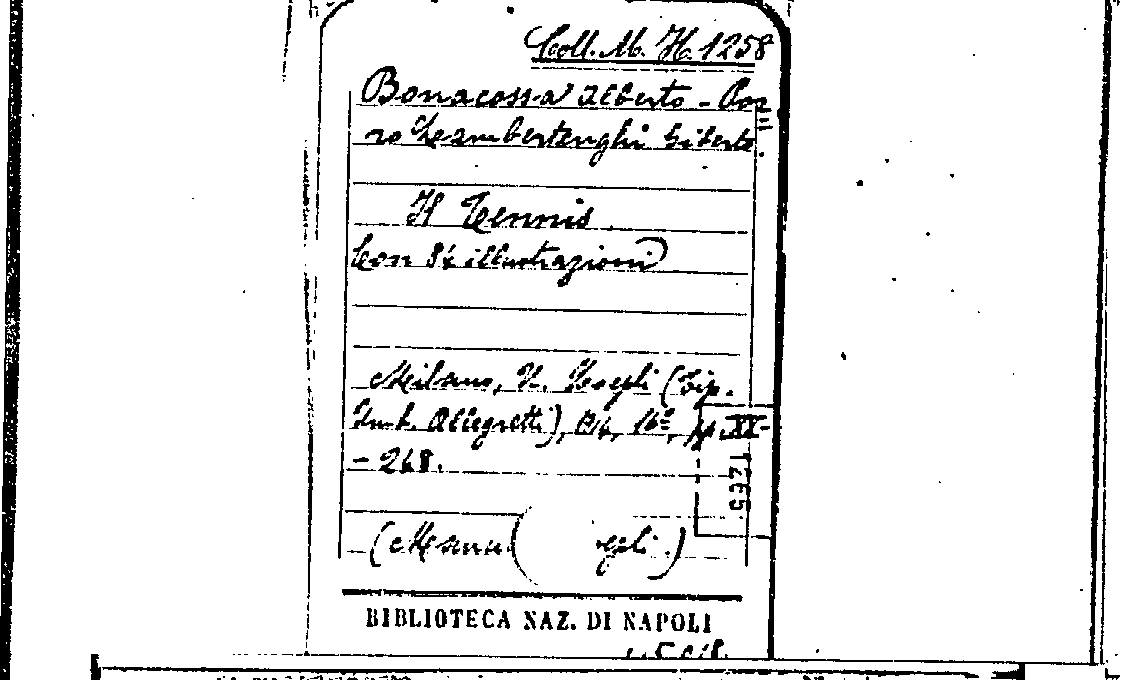 Coll. M. H. 1258
Bonacossa Alberto - Por-
ro Lambertenghi Giberto.
Il Tennis
Con 84 illustrazioni
Milano, U. Hoepli (Tip.
Umb. Allegretti), 914, 16º, pp. XX-
- 268.
1265
(Manu epli.)
BIBLIOTECA NAZ. DI NAPOLI